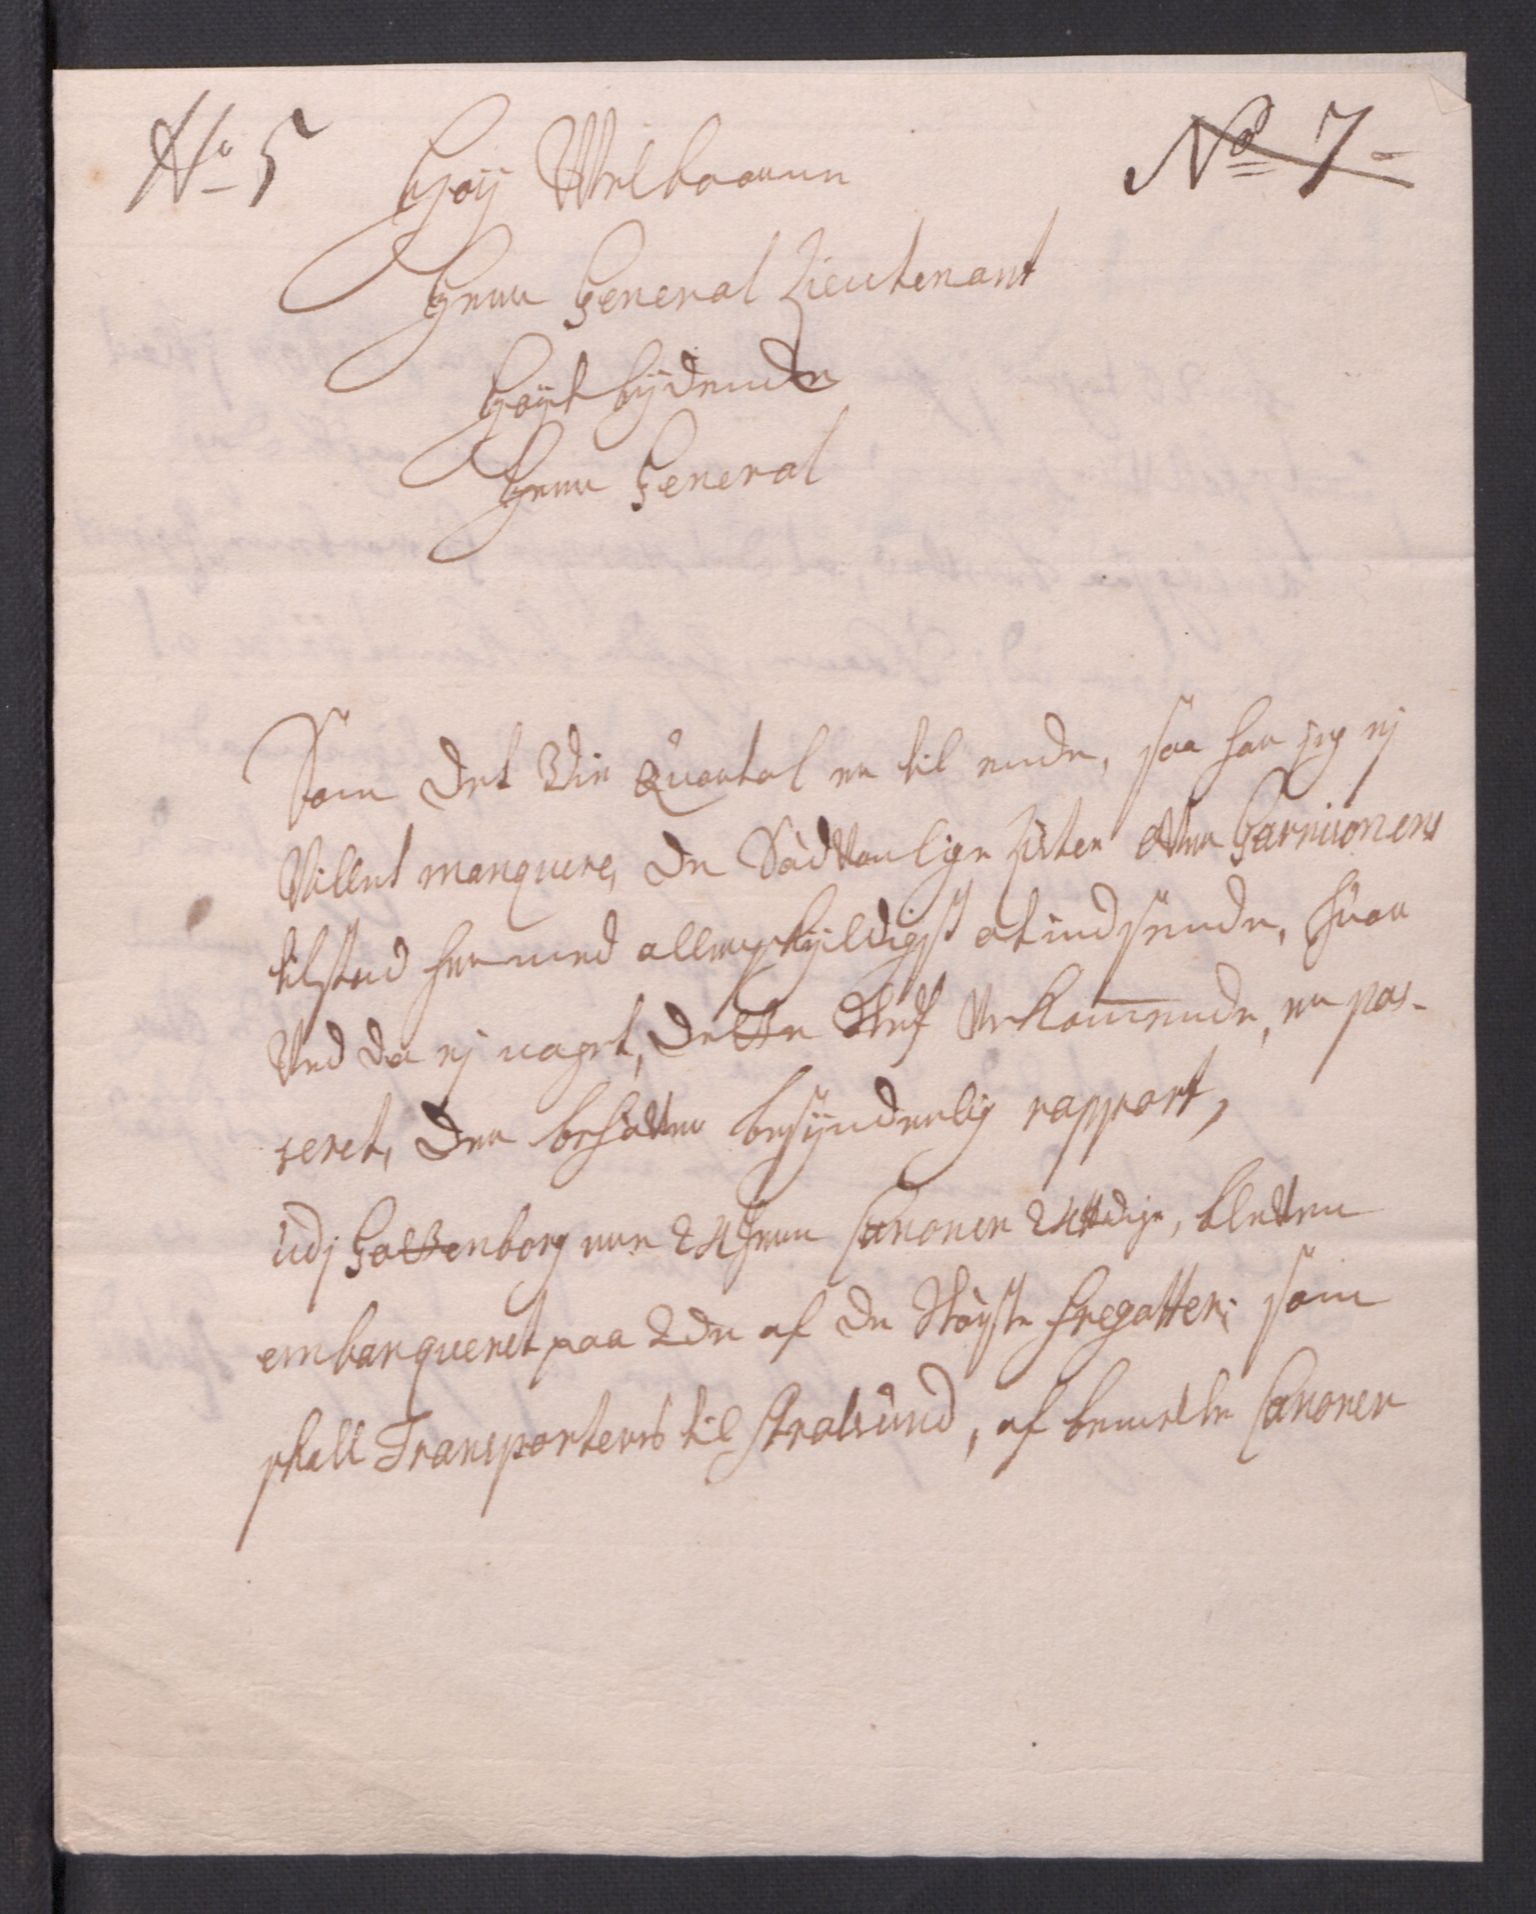 No 5
No 7
Høy Welbaarne
Herr General Lieutenant
Høyt bydende
Herr General
Som det 3die Quartal er til ende, saa har jeg ej
Villet manquere, de Sædvanlige Lister over Garnisonens
tilstand hermed allerskyldigst at indsende, hvor
Ved da ej noget, dette vedkommende, er pas-
seret, der behøver besynderlig rapport,
udj Gottenborg ere 24 Jern Canoner 24 tt dige, bleven
embarqueret paa 2de af de støyste fregatter; som
skall Transporteris til Stralsund, af bemelte Canoner